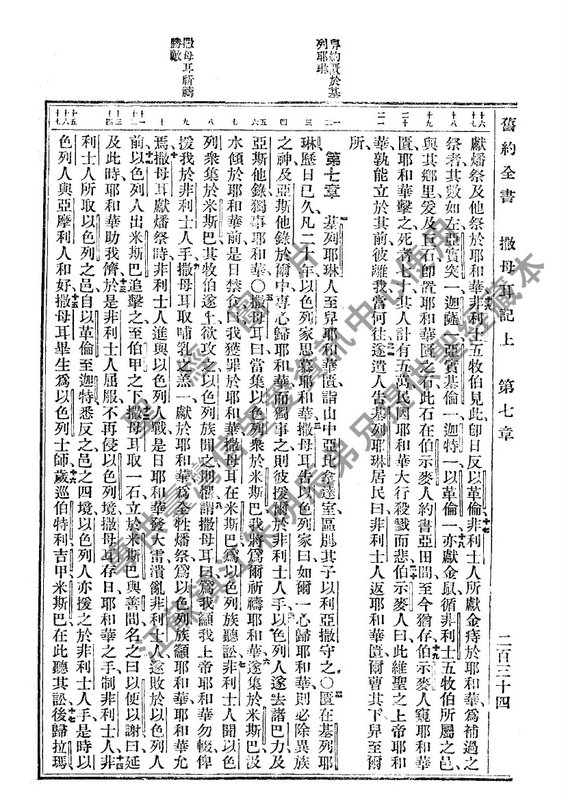 舊約全書 撒母耳記上 第七章 二百三十四
獻燔祭及他祭於耶和華非利士五牧伯見此卽日反以革倫非利士人所獻金痔於耶和華爲補過之
祭者其數如左亞實突一迦薩一亞實基倫一迦特一以革倫一亦獻金鼠循非利士五牧伯所屬之邑
與其鄉里爰及巨石卽置耶和華匱之石此石在伯示麥人約書亞田間至今猶存伯示麥人窺耶和華
匱耶和華擊之死者七十其人計有五萬民因耶和華大行殺戮而悲伯示麥人曰此維聖之上帝耶和
華孰能立於其前彼離我當何往遂遣人告基列耶琳居民曰非利士人返耶和華匱爾曹其下舁至爾
所
粵約匱於基列耶琳
第七章 基列耶琳人至舁耶和華匱詣山中亞比拿達室區別其子以利亞撒守之〇匱在基列耶
琳歷日已久凡二十年以色列家思慕耶和華撒母耳告以色列家曰如爾一心歸耶和華則必除異族
之神及亞斯他錄於爾中專心歸耶和華而獨事之則彼援爾於非利士人手以色列人遂去諸巴力及
亞斯他錄獨事耶和華〇撒母耳曰當集以色列衆於米斯巴我將爲爾祈禱耶和華遂集於米斯巴汲
撒母耳祈禱勝敵
水傾於耶和華前是日禁食曰我獲罪於耶和華撒母耳在米斯巴爲以色列族聽訟非利士人聞以色
列衆集於米斯巴其牧伯遂上欲攻之以色列族聞之則懼謂撒母耳曰爲我籲我上帝耶和華勿輟俾
援我於非利士人手撒母耳取哺乳之羔一獻於耶和華爲全牲燔祭爲以色列族籲耶和華耶和華允
焉撒母耳獻燔祭時非利士人進與以色列人戰是日耶和華發大雷潰亂非利士人遂敗於以色列人
前以色列人出米斯巴追擊之至伯甲之下撒母耳取一石立於米斯巴與善間名之曰以便以謝曰延
及此時耶和華助我儕於是非利士人屈服不再侵以色列境撒母耳存日耶和華之手制非利士人非
利士人所取以色列之邑自以革倫至迦特悉反之邑之四境以色列人亦援之於非利士人手是時以
色列人與亞摩利人和好撒母耳畢生爲以色列士師歲巡伯特利吉甲米斯巴在此聽其訟後歸拉瑪